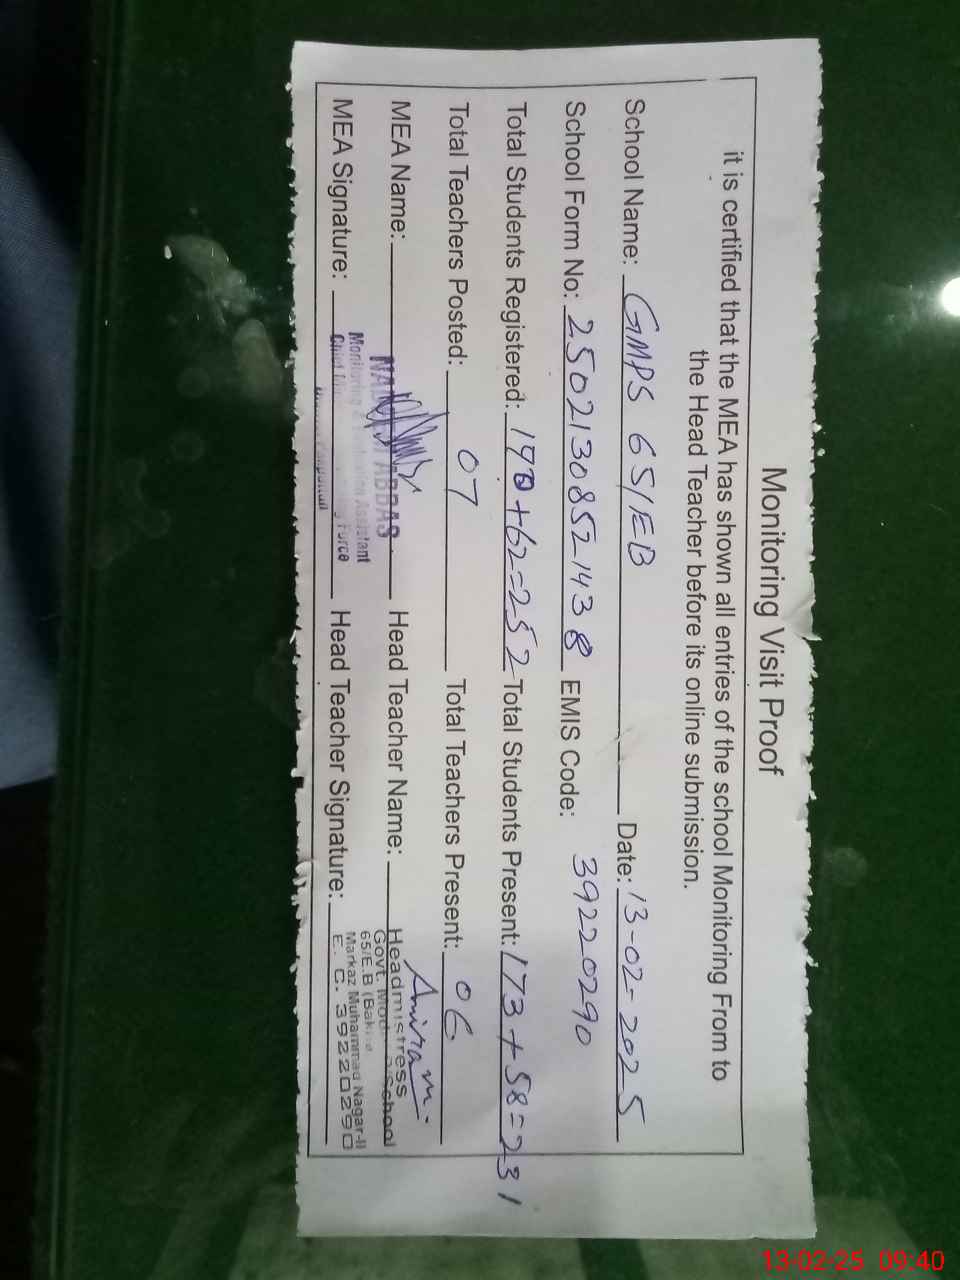 Monitoring Visit Proof
it is certified that the MEA has shown all entries of the school Monitoring From to
the Head Teacher before its online submission.
School Name: GMPS 65/EB Date: 13-02-2025
School Form No: 25021308521438 EMIS Code: 39220290
Total Students Registered: 190+62=252 Total Students Present: 173+58=231
Total Teachers Posted: 07 Total Teachers Present: 06
MEA Name: ABBAS Head Teacher Name:
Monitoring & Evaluation Assistant
MEA Signature: Force Head Teacher Signature:
Headmistress
Govt. School
65/E.B
Markaz Muhammad Nagar-II
E. C. 39220290
13-02-25 09:40